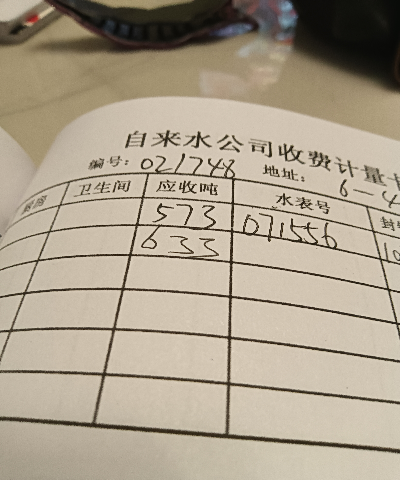 自来水公司收费计量卡
编号: 021748 地址: 6-4
厨间 卫生间 应收吨 水表号 封
573 071556 10
633